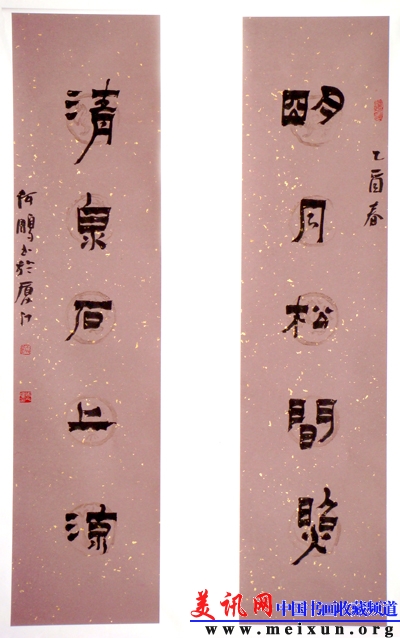 乙酉春
明月松間照
清泉石上流
何鵬书於厦门
美讯网 中国书画收藏频道
www.meixun.org